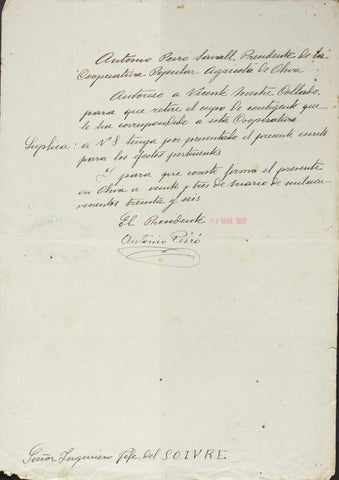 Antonio Peiró Savall, Presidente de la
Cooperativa Popular Agricola de Oliva
Autoriso a Vicente Mestre Collado,
para que retire el cupo de contigente que
le ha correspondido a esta Cooperativa
Suplica: a V.S tenga por presentado el presente escrito
para los efectos pertinentes
Y para que conste firmo el presente
en Oliva a veinte y tres de marzo de mil nove-
cientos treinta y seis.
El Presidente
24 MAR. 1936
Antonio Peiró
Señor Ingeniero Jefe del S.O.I.V.R.E.